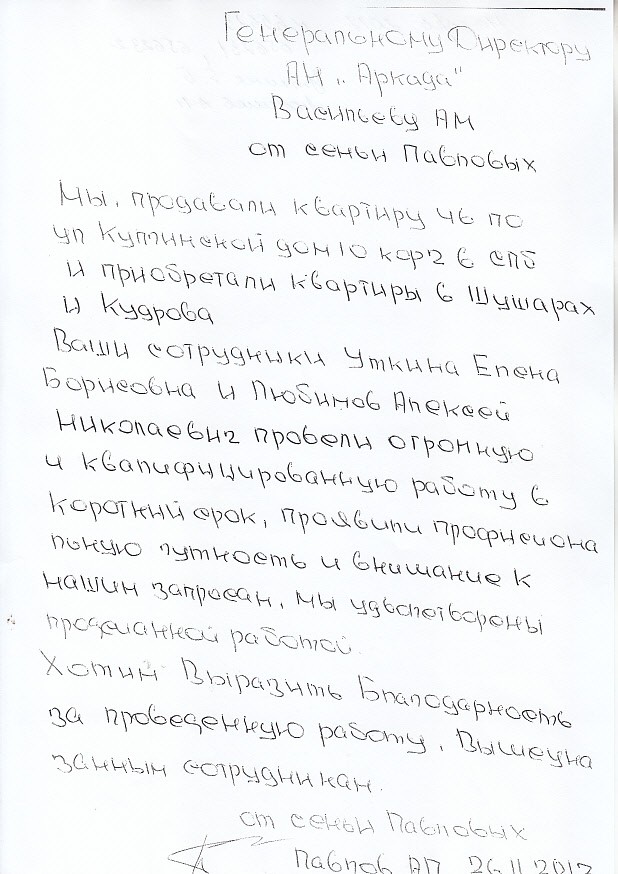 Генеральному Директору
АН „Аркада"
Васильеву АМ
от семьи Павловых
Мы, продавали квартиру 46 по
ул Купчинской дом 10 кор 2 в спб
и приобретали квартиры в Шушарах
и Кудрова
Ваши сотрудники Уткина Елена
Борисовна и Любимов Алексей
Николаевич провели огромную
и квалифицированную работу в
короткий срок, проявили профисиона
льную чуткость и внимание к
нашим запросам, мы удволетвороны
проделанной работой.
Хотим Выразить Благодарность
за проведенную работу, Вышеука
занным сотрудникам.
от семьи Павловых
Павлов АП 26.11.2017